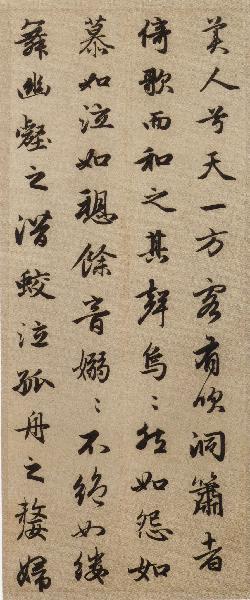 美人兮天一方客有吹洞簫者
倚歌而和之其聲烏〻然如怨如
慕如泣如𢡟餘音嫋〻不絕如縷
舞幽壑之潛蛟泣孤舟之嫠婦